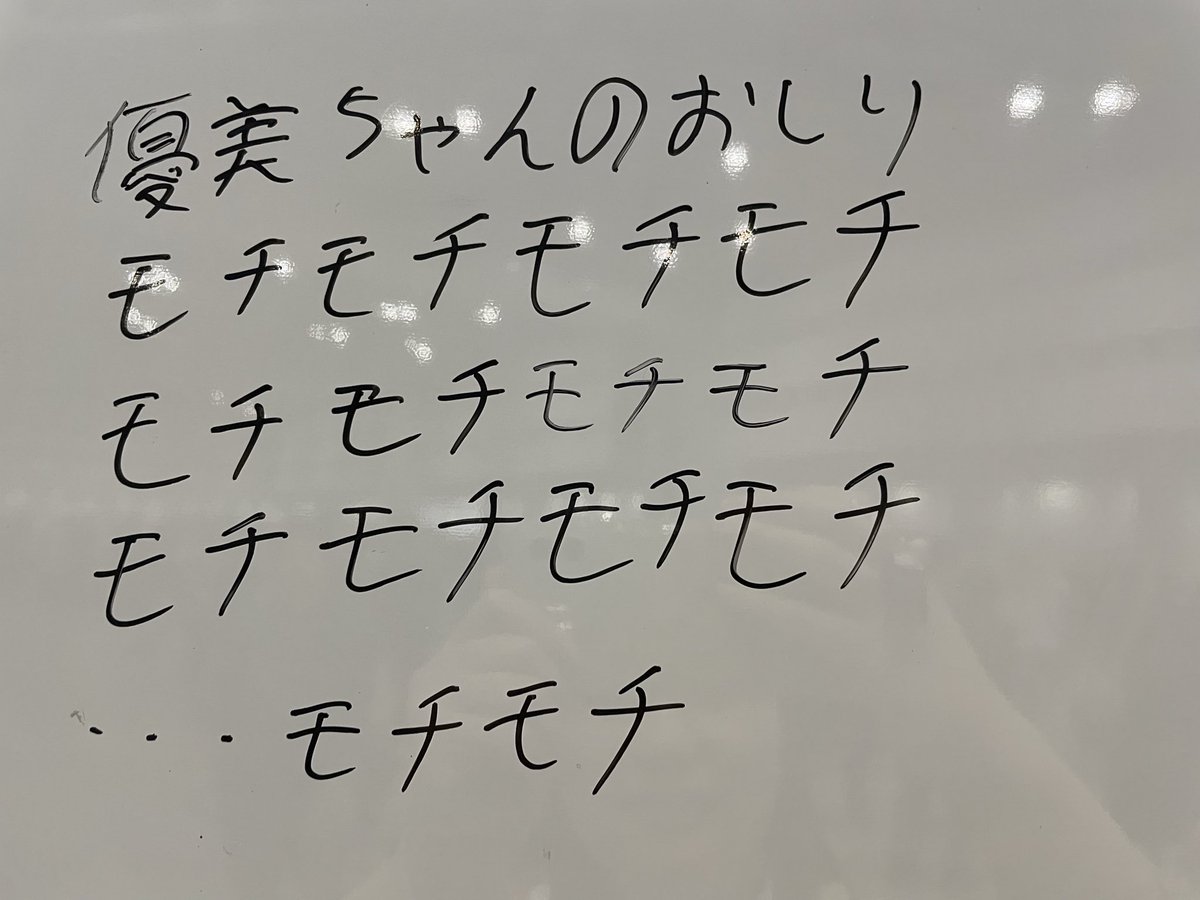 優美ちゃんのおしり
モチモチモチモチ
モチモチモチモチ
モチモチモチモチ
・・・モチモチ